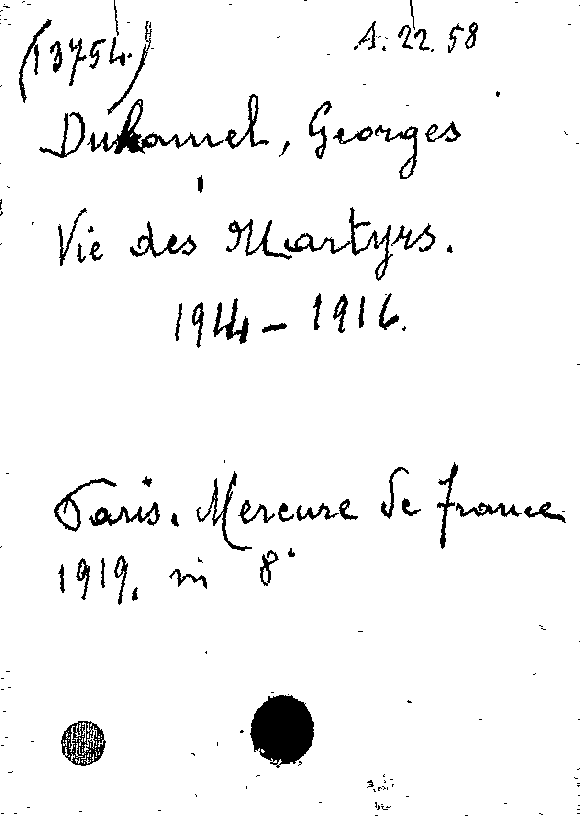 (13754) A. 22. 58
Duhamel, Georges
Vie des Martyrs.
1914 - 1916.
Paris. Mercure de France
1919. in 8°